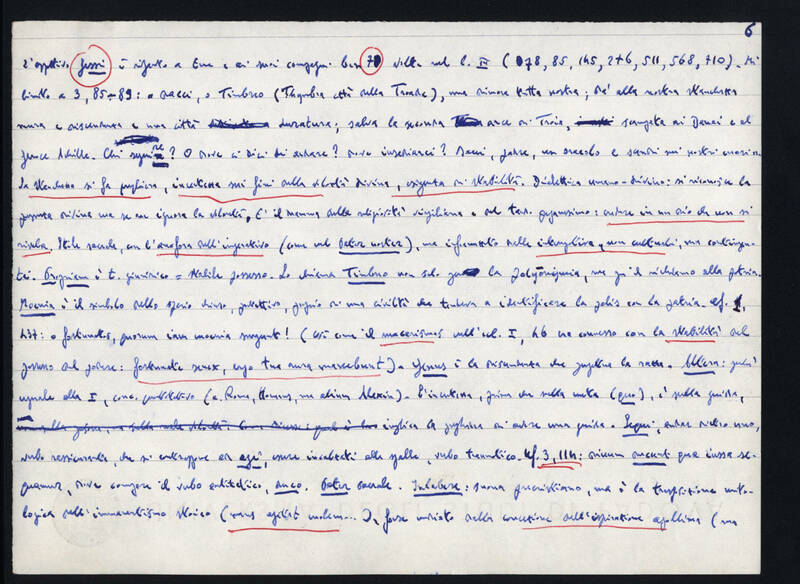 6
L'aggettivo fessi è riferito a Enea e ai suoi compagni ben 7 volte nel l. III (078, 85, 145, 276, 511, 568, 710). Mi
limito a 3, 85-89: o dacci, o Timbreo (Thymbra città della Troade), una dimora tutta nostra; dà alla nostra stanchezza
mura e discendenza e una città duratura; salva la seconda arce di Troia, scampata ai Danai e al
feroce Achille. Chi seguire? O dove ci dici di andare? Dove insediarci? Dacci, padre, un oracolo e scendi nei nostri cuori.
La stanchezza si fa preghiera, incertezza sui fini della volontà divina, esigenza di stabilità. Dialettica umano-divino: si riconosce la
potenza divina ma se ne ignora la volontà. È il dramma della religiosità virgiliana e del tardo paganesimo: credere in un dio che non si
rivela. Stile sacrale, con l'anafora dell'imperativo (come nel Pater noster), ma infirmato dalle interrogative, non cultuali, ma contingen-
tei. Propriam è t. giuridico = stabile possesso. Lo chiama Timbreo non solo per la polyonymia, ma per il richiamo alla patria.
Moenia è il simbolo dello spazio chiuso, protettivo, proprio di una civiltà che tendeva a identificare la polis con la patria. Cf. 1,
437: o fortunati, quorum iam moenia surgunt! (così come il macarismos dell'ecl. I, 46 era connesso con la stabilità del
possesso del podere: fortunate senex, ergo tua rura manebunt). Genus è la discendenza che perpetua la razza. Altera: perché
uguale alla I, conc. (a. Roma, Homerus, ma alium Alexin). L'incertezza, prima che nella meta (quo), è nella guida,
implica la preghiera di avere una guida. Sequi, andar dietro uno,
verbo rassicurante, che si contrappone ad agi, essere incalzati alle spalle, verbo traumatico. Cf. 3, 114: divum ducunt qua iussa se-
quamur, dove compare il verbo antitetico, duco. Pater sacrale. Inlabere: suona precristiano, ma è la trasposizione mito-
logica dell'immanentismo stoico (mens agitat molem...), forse mediato dalla concezione dell'ispirazione apollinea (ma